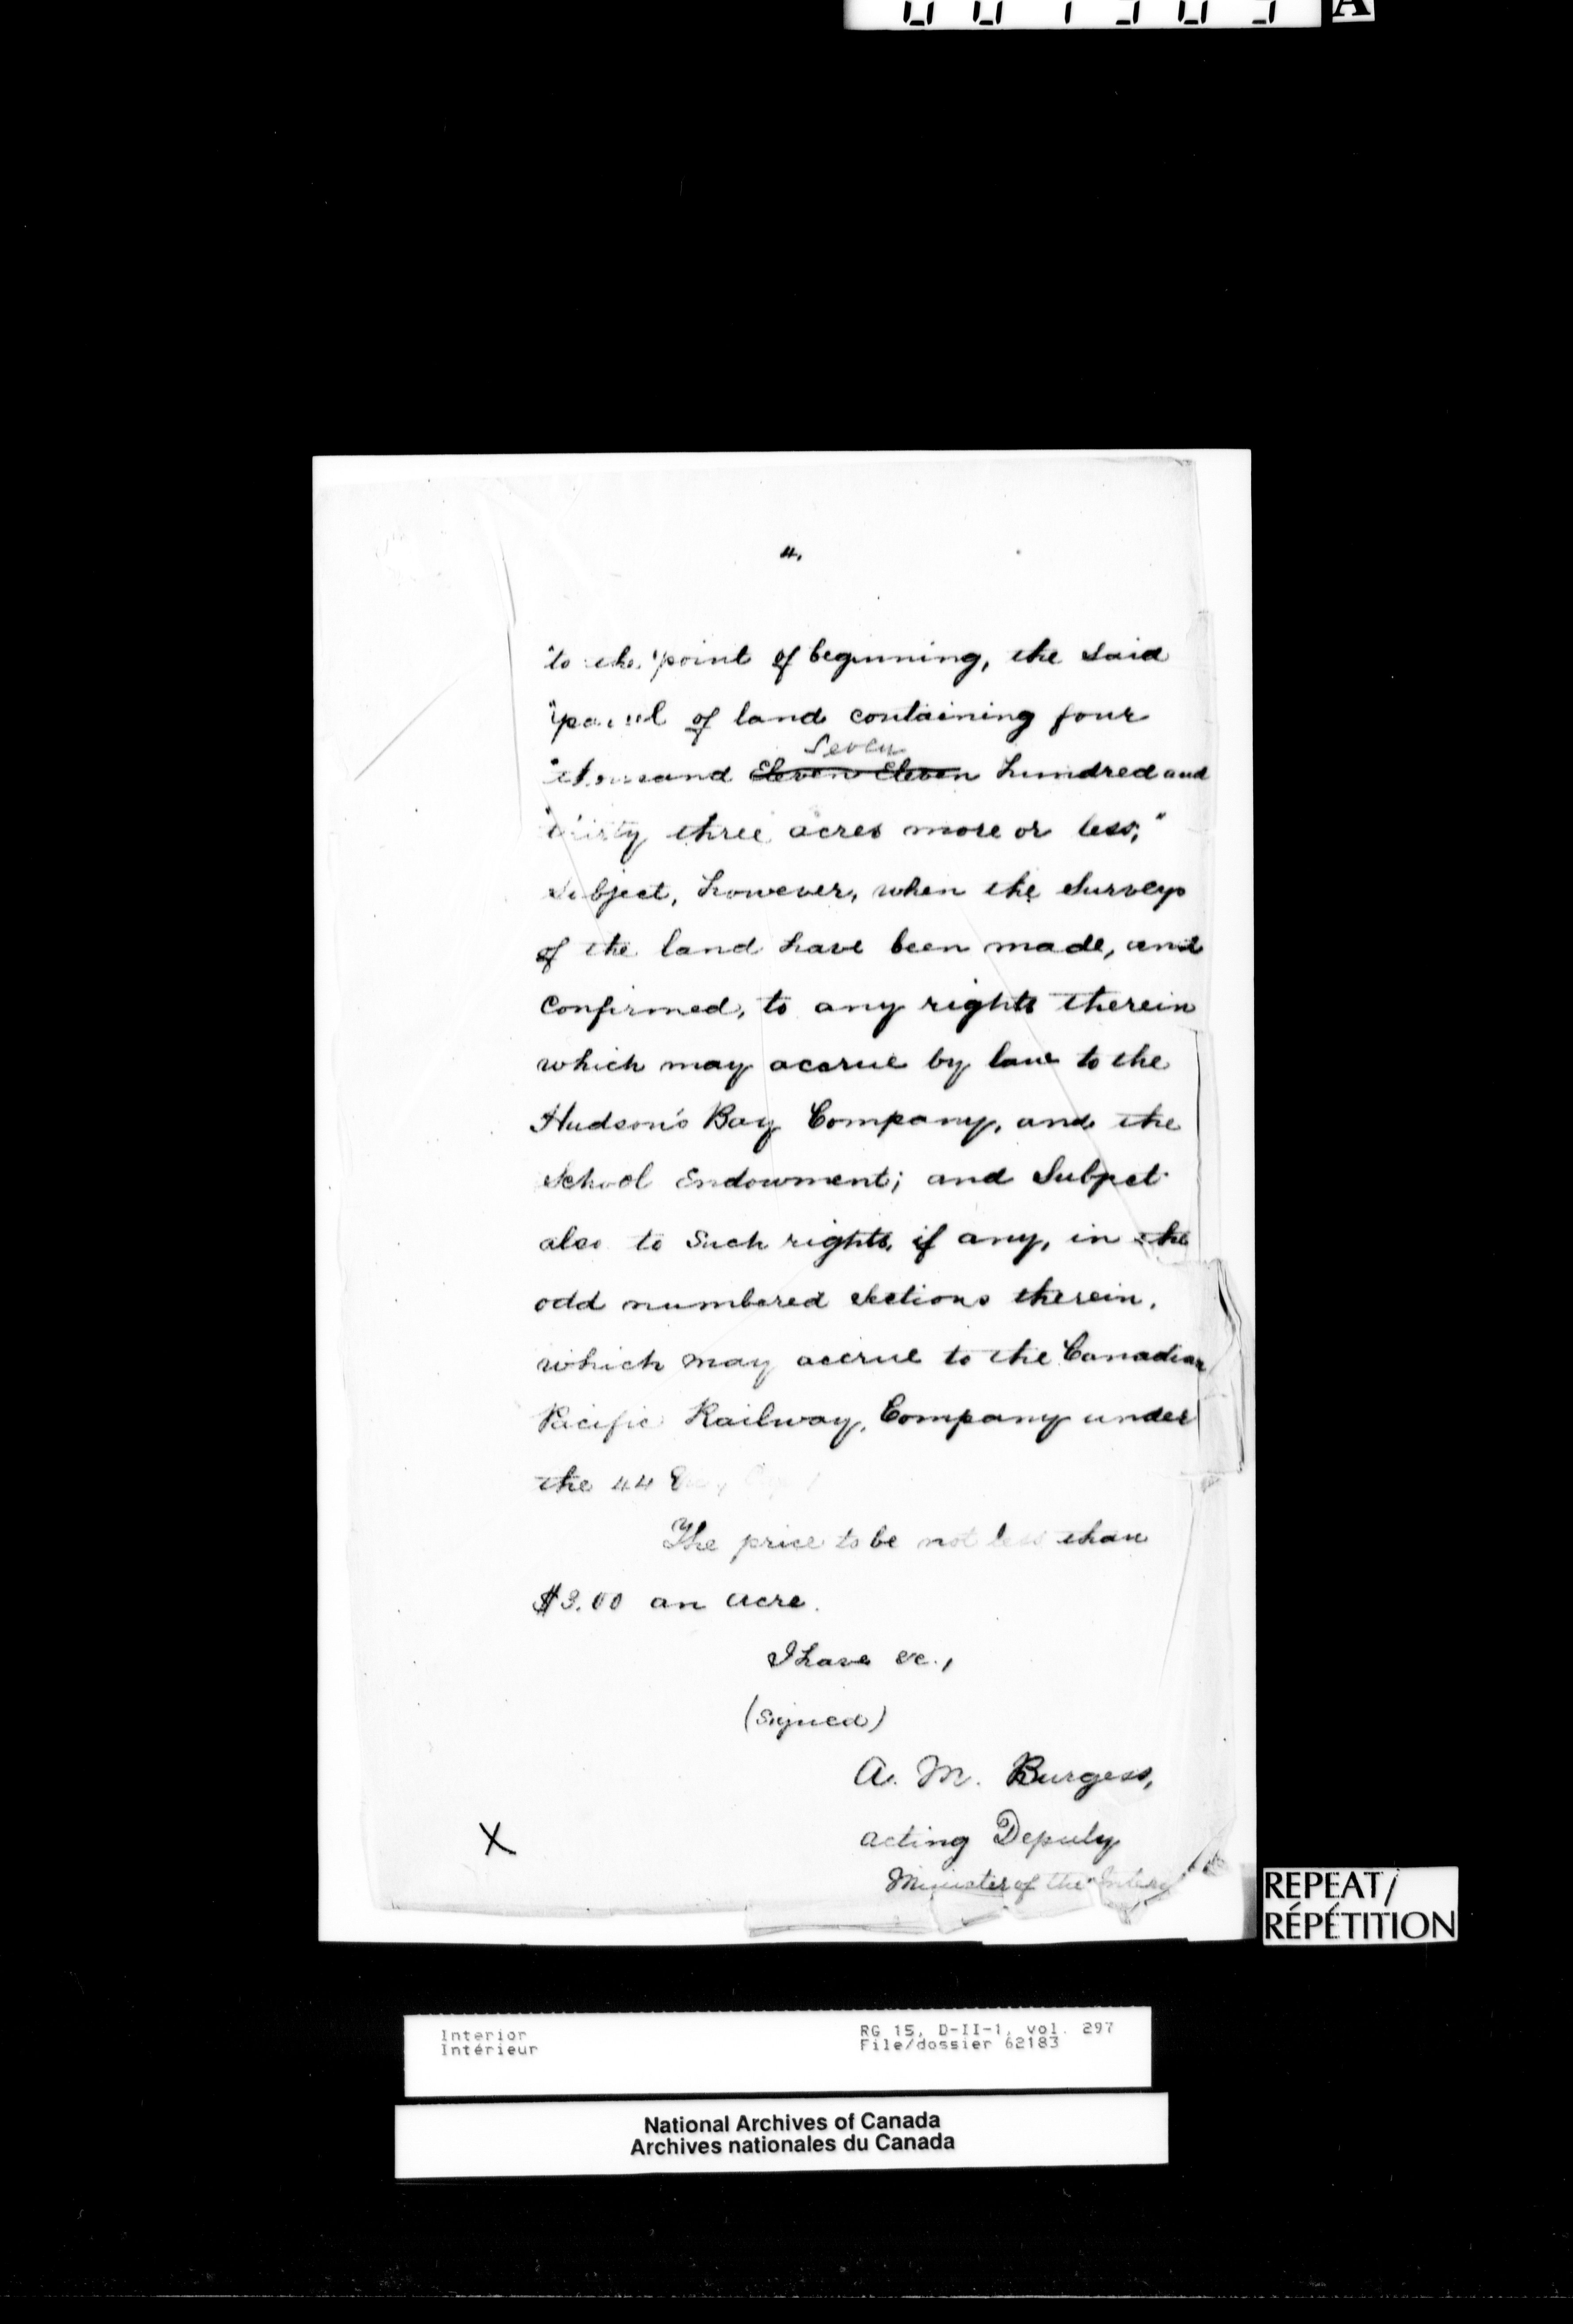 4.
"to the point of beginning, the said
"parcel of land containing four
Seven
"thousand Eleven Eleven hundred and
"thirty three acres more or less,"
Subject, however, when the Surveys
of the land have been made, and
Confirmed, to any rights therein
which may accrue by law to the
Hudson's Bay Company, and the
School Endowment; and Subject
also to Such rights, if any, in the
odd numbered sections therein,
which may accrue to the Canadian
Pacific Railway, Company under
the 44
The price to be not less than
$3.00 an acre.
I have &c.,
(Signed)
A. M. Burgess,
acting Deputy
X
Minister of the Interior
REPEAT/
RÉPÉTITION
Interior
Intérieur
RG 15, D-II-1, vol. 297
File/dossier 62183
National Archives of Canada
Archives nationales du Canada